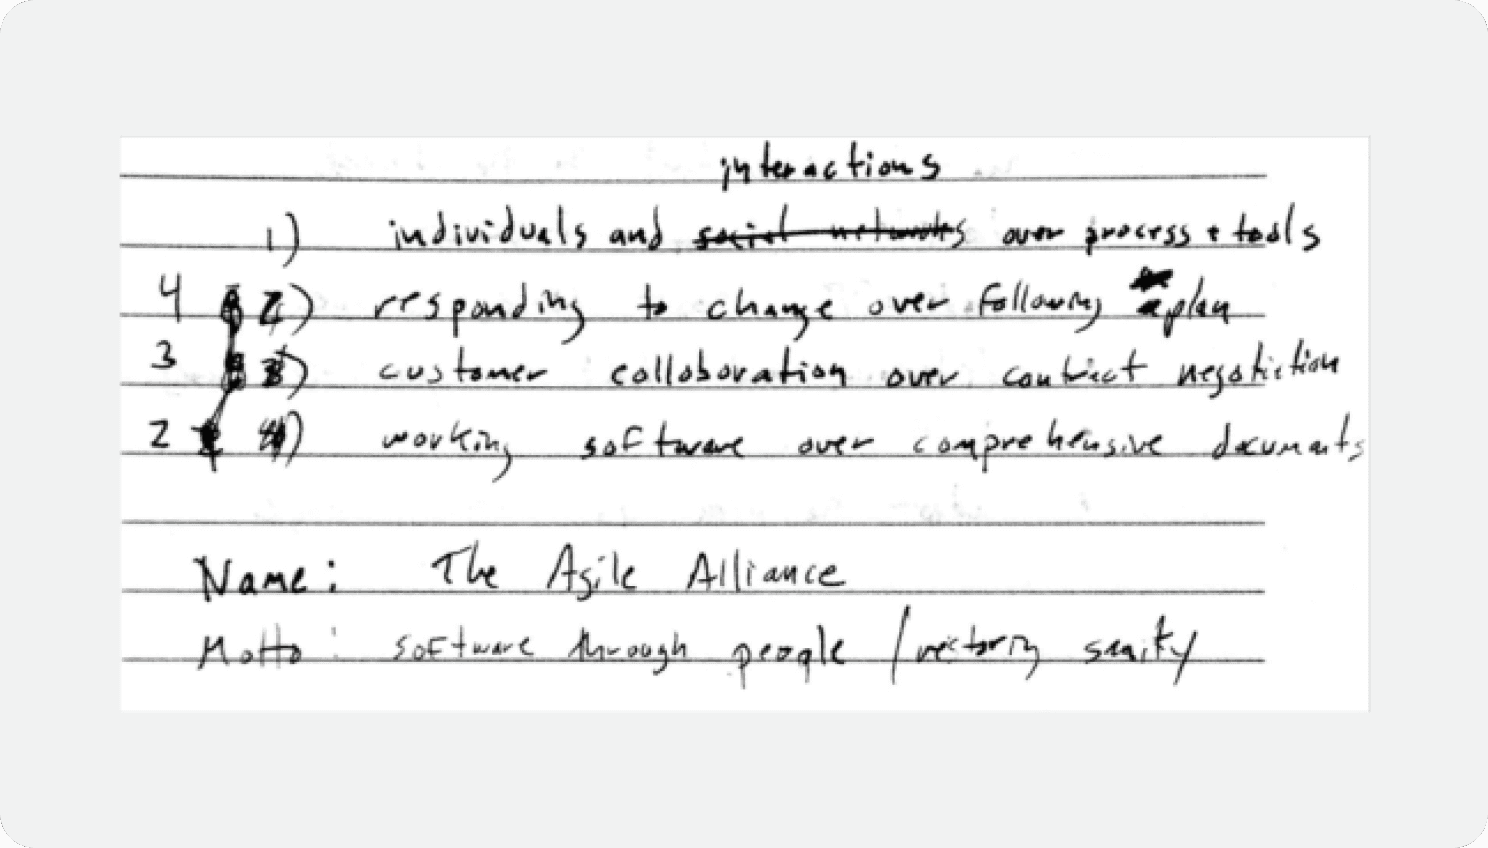 interactions
1) individuals and social networks over process + tools
4 2) responding to change over following a plan
3 3) customer collaboration over contract negotiation
2 4) working software over comprehensive documents
Name: The Agile Alliance
Motto: software through people / restoring sanity